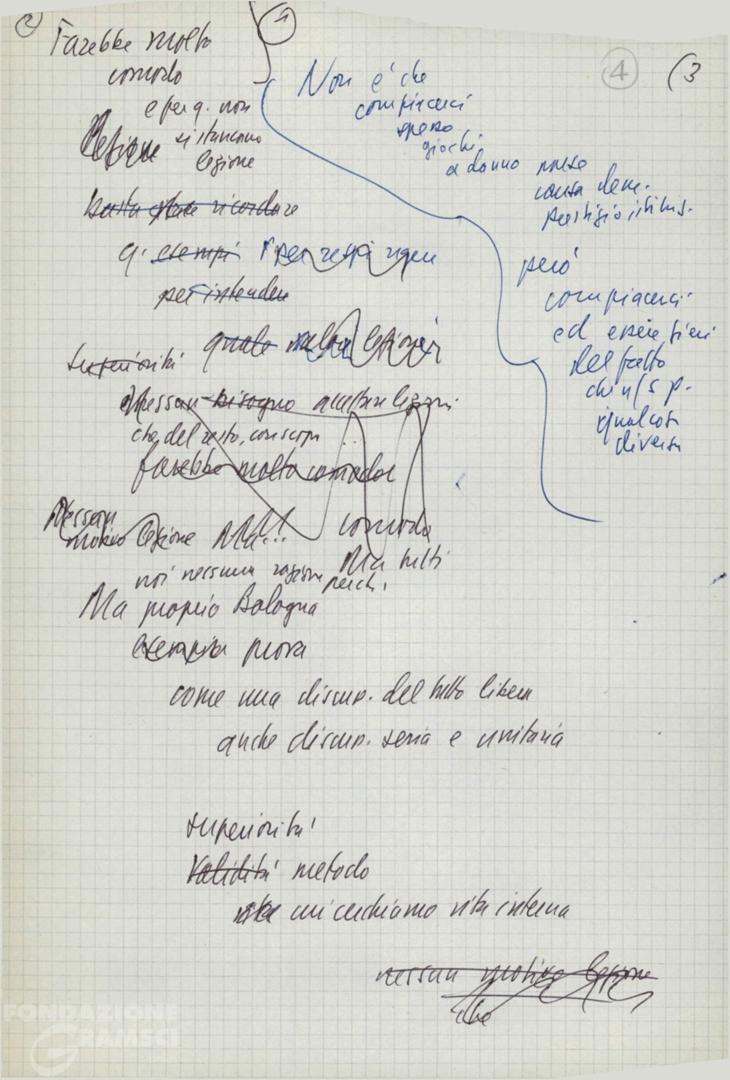 2
1
4
(3
Farebbe molto
comodo
e per q. non
si stancano
lezione
Basta ricordare
q. esempi per respingere
per intendere
quale lezioni
superiorità
Nessun bisogno lezioni
che, del resto,
farebbe molto comodo
Nessun
motivo lezione Ma!! comoda
Ma tutti
noi nessuna ragione perch.
Ma proprio Bologna
esempio prova
come una discuss. del tutto libera
anche discuss. seria e unitaria
superiorità
Validità metodo
cui cerchiamo vita interna
nessun motivo lezione
che
Non è che
compiacerci
spesso
giochi
a danno nosse
causa dem.
prestigio istituz.
però
compiacerci
ed essere fieri
del fatto
chi n/s p.
qualcosa
diverso
FONDAZIONE
GRAMSCI